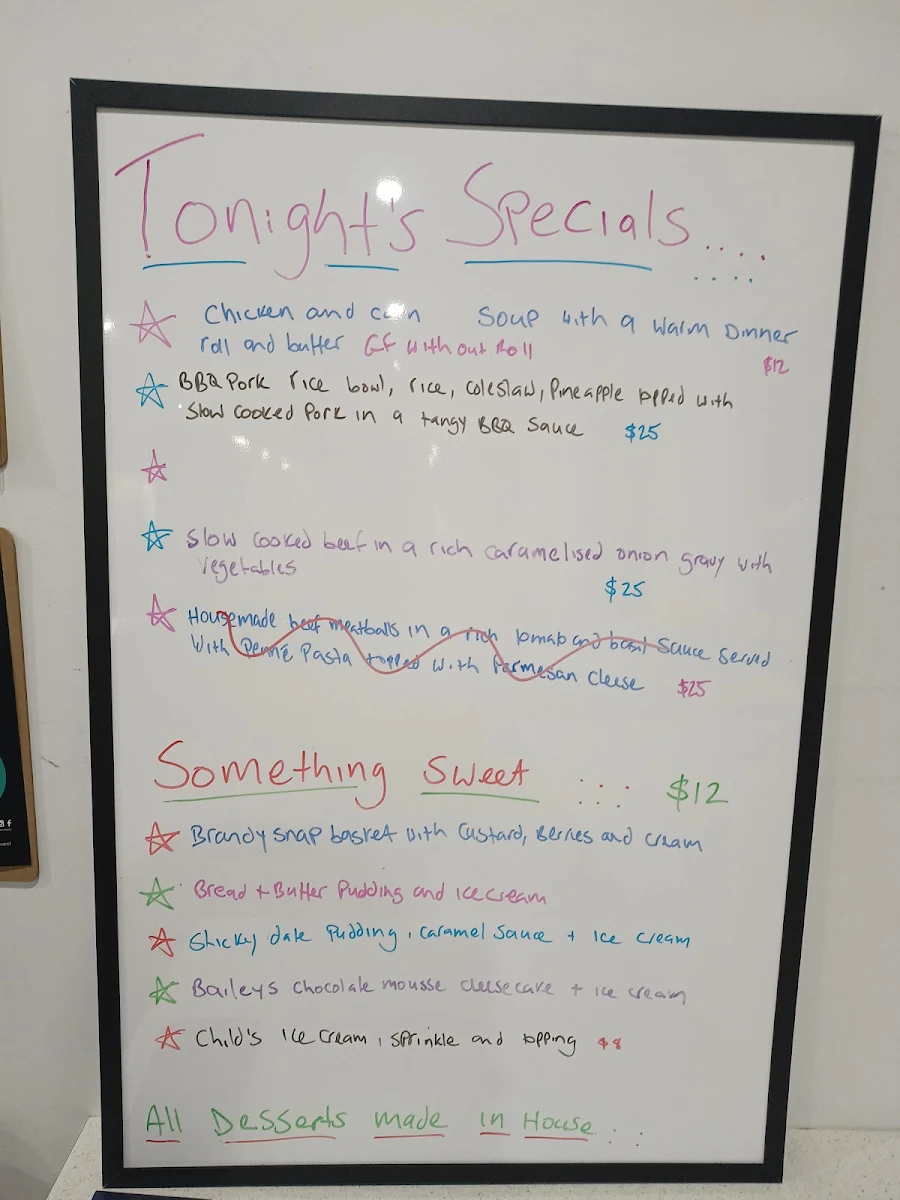 Tonight's Specials....
Chicken and corn Soup with a warm Dinner
roll and butter GF without Roll
$12
BBQ Pork rice bowl, rice, coleslaw, Pineapple topped with
slow cooked Pork in a tangy BBQ sauce $25
Slow cooked beef in a rich caramelised onion gravy with
vegetables
$25
Housemade beef meatballs in a rich tomato and basil sauce served
with Penne Pasta topped with Parmesan cheese $25
Something sweet ... $12
Brandy snap basket with custard, Berries and cream
Bread + Butter Pudding and ice cream
Sticky date Pudding, caramel sauce + ice cream
Baileys chocolate mousse cheesecake + ice cream
Child's ice cream, sprinkle and topping $8
All Desserts made in House...